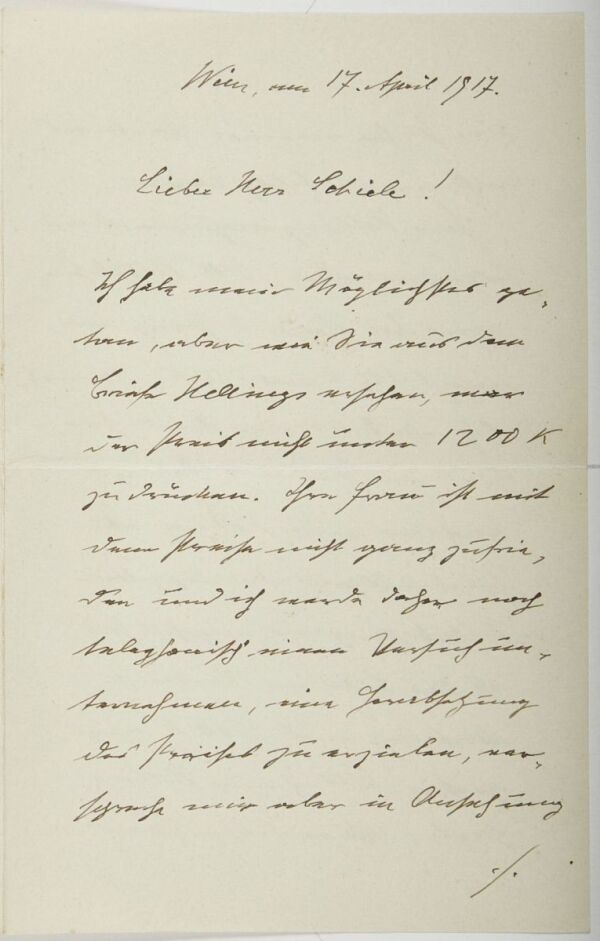 Wien, am 17. April 1917.
Lieber Herr Schiele!
Ich habe mein Möglichstes ge-
tan, aber wie Sie aus dem
Briefe Hellings ersehen, war
der Preis nicht unter 1200 K
zu drücken. Ihre Frau ist mit
dem Preise nicht ganz zufrie-
den und ich werde daher noch
telephonisch einen Versuch un-
ternehmen, eine Herabsetzung
des Preises zu erzielen, ver-
spreche mir aber in Ansehung
./.